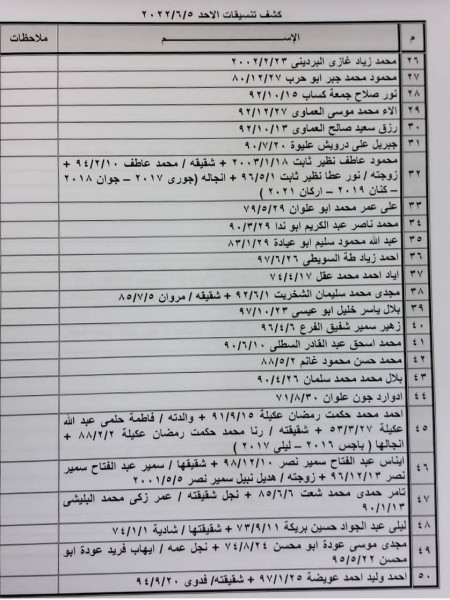 كشف تنسيقات الاحد ٢٠٢٢/٦/٥
م الإســـم ملاحظات
٢٦ محمد زياد غازى البرديني ٢٠٠٢/٢/٢٣
٢٧ محمود محمد جبر ابو حرب ٨٠/١٢/٢٧
٢٨ نور صلاح جمعة كساب ٩٢/١٠/١٥
٢٩ الاء محمد موسى العماوى ٩٢/١٢/٢٧
٣٠ رزق سعيد صالح العماوى ٩٢/١٠/١٣
٣١ جبريل على درويش عليوة ٩٠/٧/٢٠
محمود عاطف نظير ثابت ٢٠٠٣/١/١٨ + شقيقه / محمد عاطف ٩٤/٢/١٠ +
٣٢ زوجته / نور عطا نظير ثابت ٩٦/٥/١ + انجاله (جورى ٢٠١٧ – جوان ٢٠١٨
– كنان ٢٠١٩ – اركان ٢٠٢١ )
٣٣ على عمر محمد ابو علوان ٧٩/٥/٢٩
٣٤ محمد ناصر عبد الكريم ابو ندا ٩٠/٣/٢٩
٣٥ عبد الله محمود سليم ابو عيادة ٨٣/١/٢٩
٣٦ احمد زياد طة السويطى ٩٧/٦/٢٦
٣٧ اياد احمد محمد عقل ٧٤/٤/١٧
٣٨ مجدى محمد سليمان الشخريت ٩٢/٦/١ + شقيقه / مروان ٨٥/٧/٥
٣٩ بلال ياسر خليل ابو عيسى ٩٧/١٠/٢٣
٤٠ زهير سمير شفيق الفرع ٩٦/٤/٦
٤١ محمد اسحق عبد القادر السطلى ٩٠/٦/١٠
٤٢ محمد حسن محمود غانم ٨٨/٥/٢
٤٣ بلال محمد محمد سلمان ٩٠/٤/٢٦
٤٤ ادوارد جون علوان ٧١/٨/٣٠
احمد محمد حكمت رمضان عكيلة ٩١/٩/١٥ + والدته / فاطمة حلمى عبد الله
٤٥ عكيلة ٥٣/٣/٢٧ + شقيقته / رنا محمد حكمت رمضان عكيلة ٨٨/٢/٢ +
انجالها ( باجس ٢٠١٦ – ليلى ٢٠١٧ )
٤٦ ايناس عبد الفتاح سمير نصر ٩٨/١٢/١٠ + شقيقها / سمير عبد الفتاح سمير
نصر ٩٦/١٢/١٣ + زوجته / هديل نبيل سمير نصر ٢٠٠١/٥/٥
٤٧ تامر حمدى محمد شعت ٨٥/٦/٦ + نجل شقيقته / عمر زكى محمد البليشى
٩٠/١/١٣
٤٨ ليلى عبد الجواد حسين بريكة ٧٣/٩/١١ + شقيقتها / شادية ٧٤/١/١
٤٩ مجدى موسى عودة ابو محسن ٧٤/٨/٢٤ + نجل عمه / ايهاب فريد عودة ابو
محسن ٩٥/٥/٢٢
٥٠ احمد وليد احمد عويضة ٩٧/١/٢٥ + شقيقته/ فدوى ٩٤/٩/٢٠